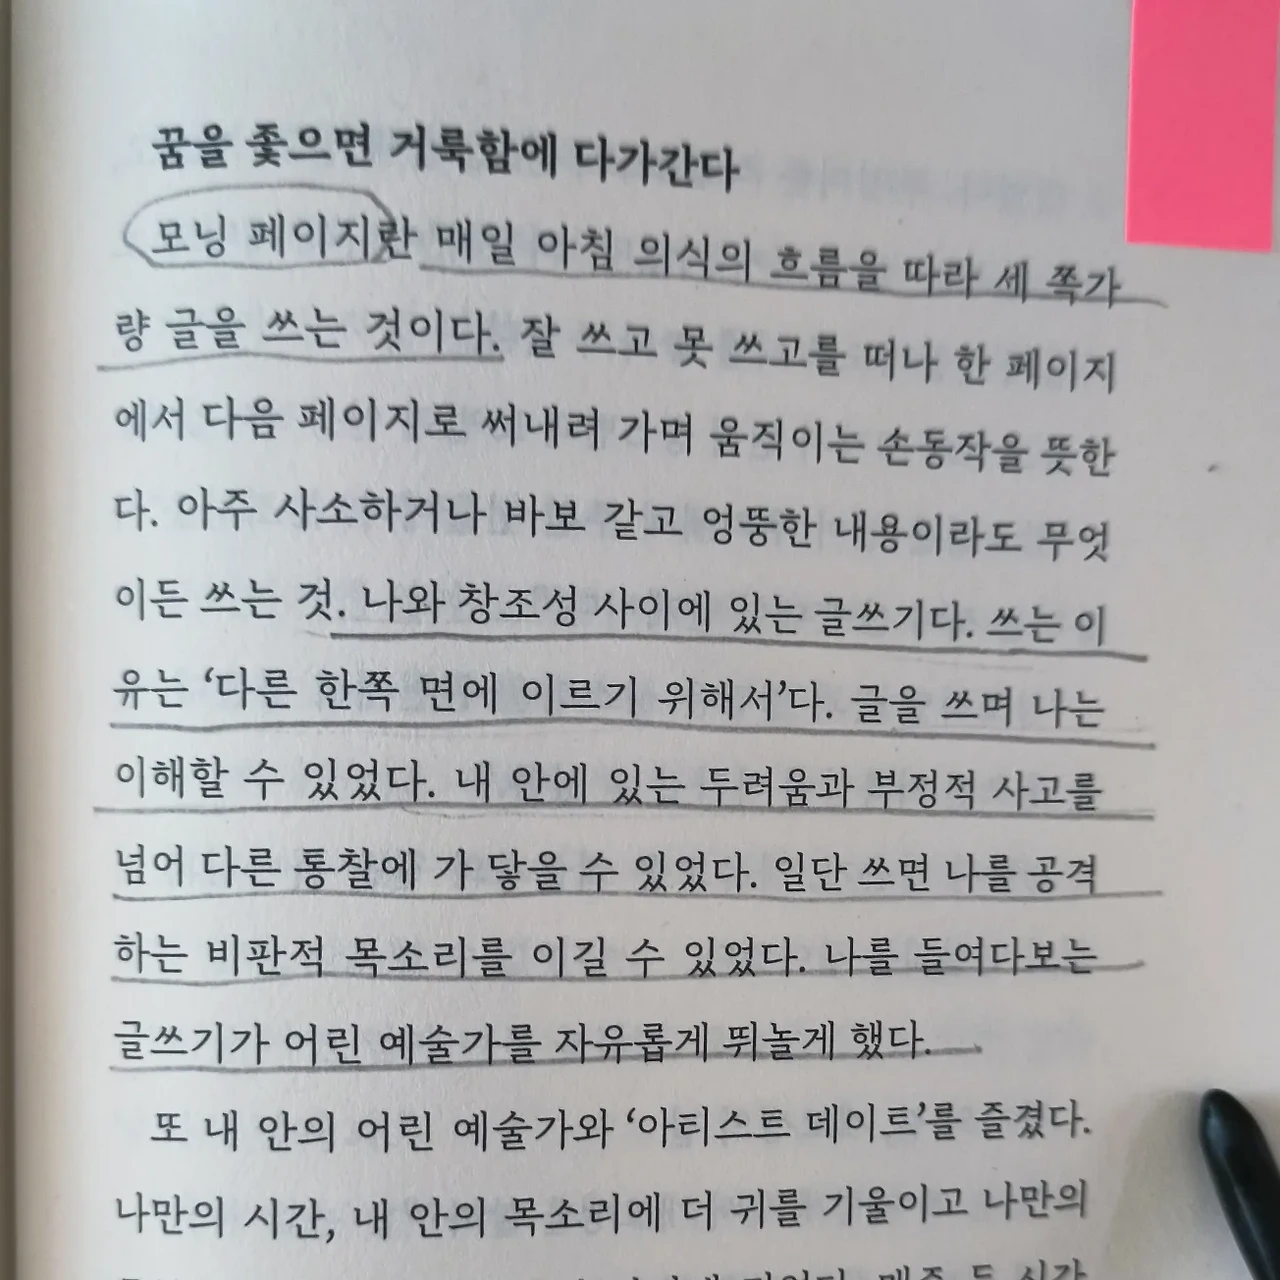 꿈을 좇으면 거룩함에 다가간다
모닝 페이지란 매일 아침 의식의 흐름을 따라 세 쪽가
량 글을 쓰는 것이다. 잘 쓰고 못 쓰고를 떠나 한 페이지
에서 다음 페이지로 써내려 가며 움직이는 손동작을 뜻한
다. 아주 사소하거나 바보 같고 엉뚱한 내용이라도 무엇
이든 쓰는 것. 나와 창조성 사이에 있는 글쓰기다. 쓰는 이
유는 ‘다른 한쪽 면에 이르기 위해서’다. 글을 쓰며 나는
이해할 수 있었다. 내 안에 있는 두려움과 부정적 사고를
넘어 다른 통찰에 가 닿을 수 있었다. 일단 쓰면 나를 공격
하는 비판적 목소리를 이길 수 있었다. 나를 들여다보는
글쓰기가 어린 예술가를 자유롭게 뛰놀게 했다.
또 내 안의 어린 예술가와 ‘아티스트 데이트’를 즐겼다.
나만의 시간, 내 안의 목소리에 더 귀를 기울이고 나만의
시간